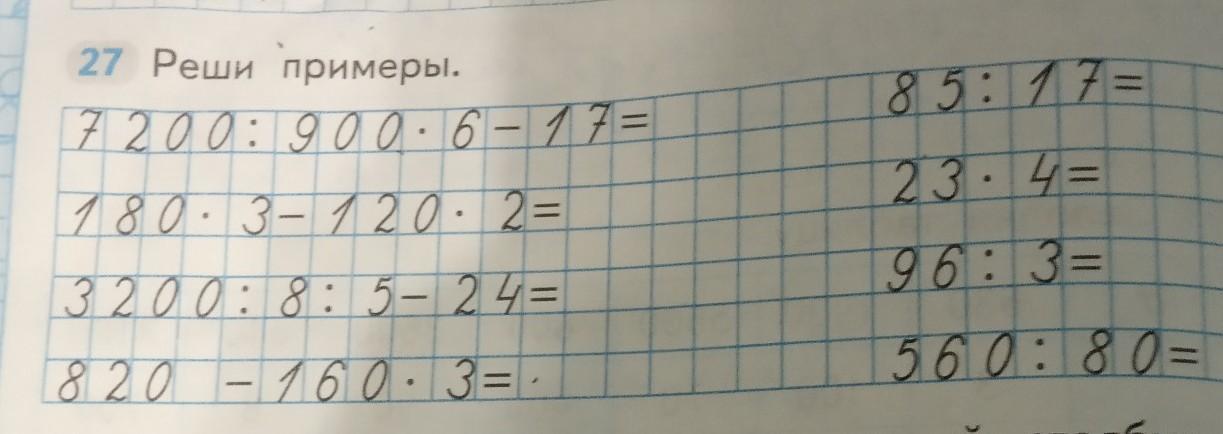 27 Реши примеры.
7200:900·6-17=
180·3-120·2=
3200:8:5-24=
820 -160·3=
85:17=
23·4=
96:3=
560:80=